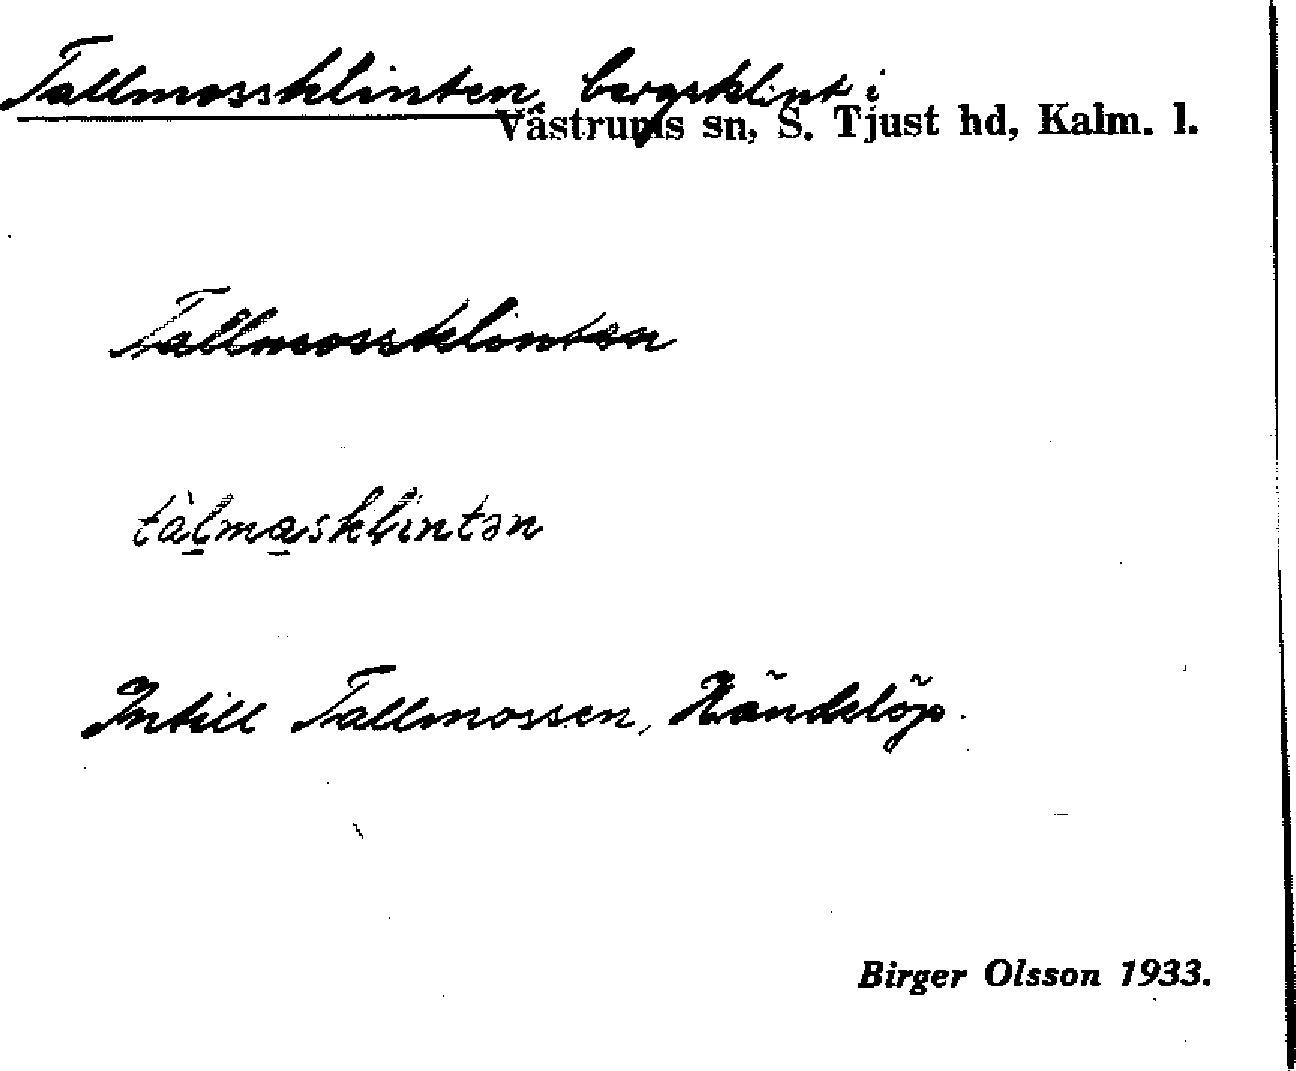 Tallmossklinten, bergsklint i
Västrums sn, S. Tjust hd, Kalm. l.
Tallmossklinten
tàl̠ma̠sklintən
Intill Tallmossen, Händelöp.
Birger Olsson 1933.